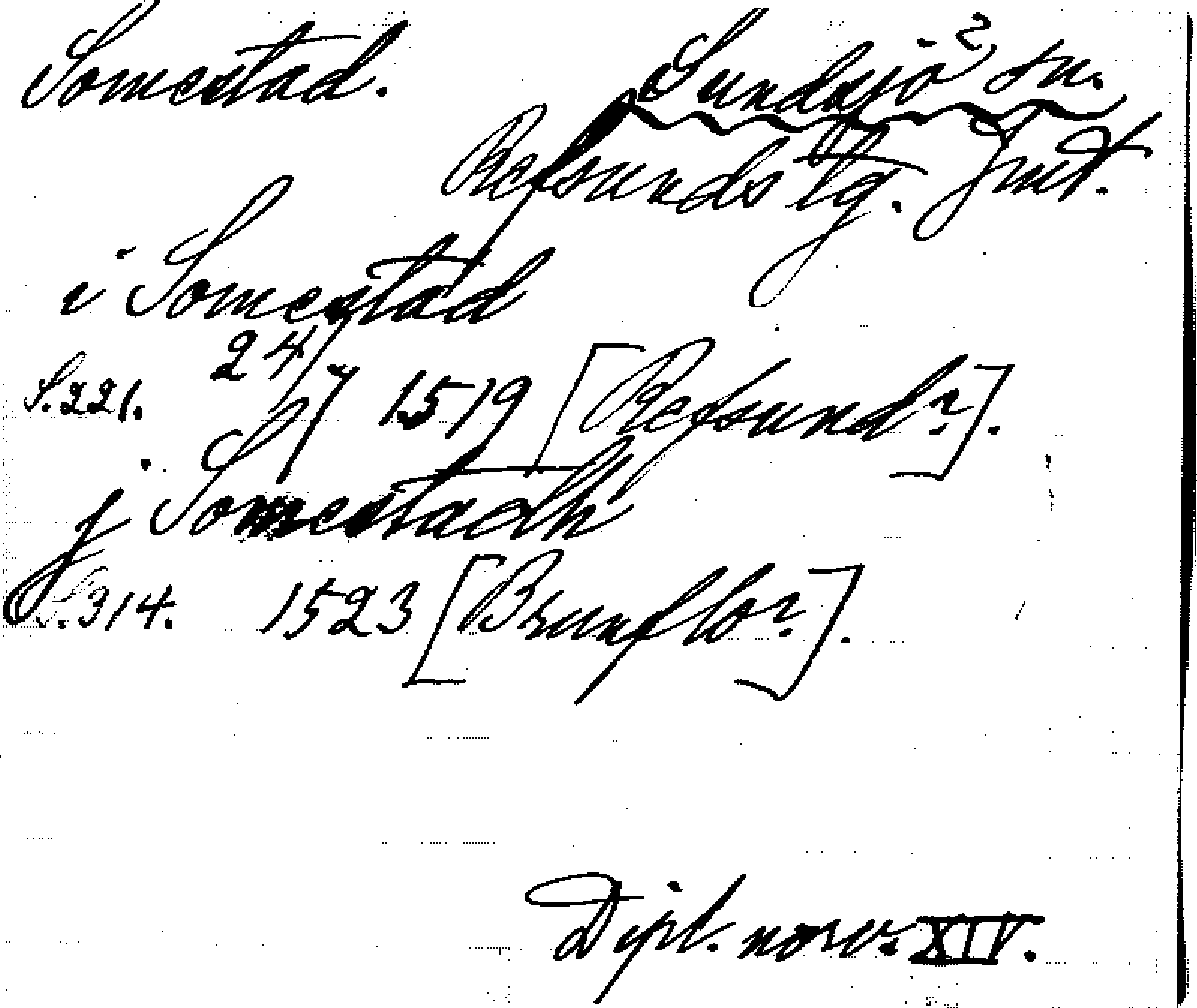 Somestad. Sundsjö? sn.
Refsunds tg. Jmt.
i Somestad
S. 221. 24/7 1519 [Refsund?].
j Somestadh
S. 314. 1523 [Brunflo?].
Dipl. norv. XIV.